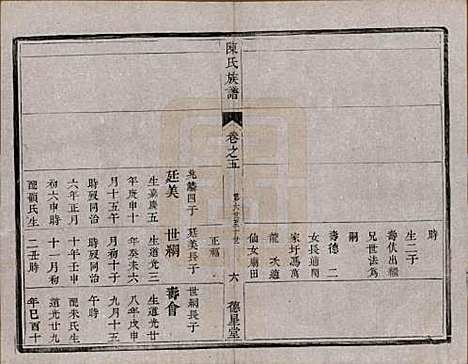 時
生二子
壽伏出繼
兄世法為
嗣
壽德 二
女長適閻
家圩馮萬
龍 次適
仙女廟田
陳氏族譜
卷之五
第六世至十世
六
德星堂
兆麟四子
廷美
生嘉慶五
年庚申十
月十五午
時歿同治
六年正月
初六申時
配顧氏生
廷美長子
世綱
生道光三
年癸未六
月初十子
時歿同治
十一月初
二丑時
世綱長子
壽會
生道光廿
八年戊申
九月十五
時
配朱氏
生道光廿九
年巳酉十